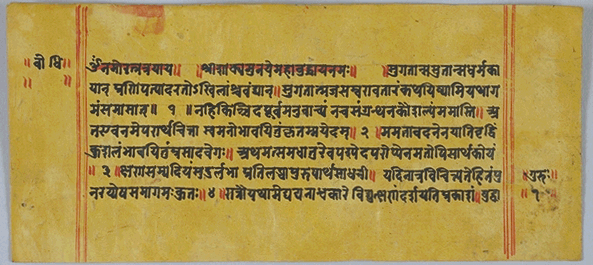 ॥ बोधि ॥ ॐ नमो रत्नत्रयाय ॥ श्रीशाक्यमुनये महाबुद्धाय नमः ॥ सुगतान्ससुतान्सधर्मका
यान् प्रणिपत्यादरतोऽखिलांश्च वंद्यान् । सुगतात्मजसम्वरावतारं कथयिष्यामि यथाग
मं समासात् ॥ १ ॥ नहि किञ्चिदपूर्वमत्र वाच्यं न च संग्रन्थनकौशल्यं ममास्ति । अ
त एव न मे परार्थचिन्ता स्वमनो भावयितुं कृतं मयेदम् ॥ २ ॥ मम तावदनेन याति वृद्धिं
कुशलं भावयितुं प्रसादवेगः ॥ अथ मत्समधातुरेव पश्येदपरोप्येनमतोपि सार्थकोयं
॥ ३ ॥ क्षणसम्पदियं सुदुर्लभा प्रतिलब्धा पुरुषार्थसाधनी । यदि नात्र विचिन्त्यते हितं पु
नरप्येष समागमः कुतः ॥ ४ ॥ रात्रौ यथा मेघघनान्धकारे विद्युत्क्षणं दर्शयति प्रकाशं । बुद्धा
॥ गुरुः ॥
१